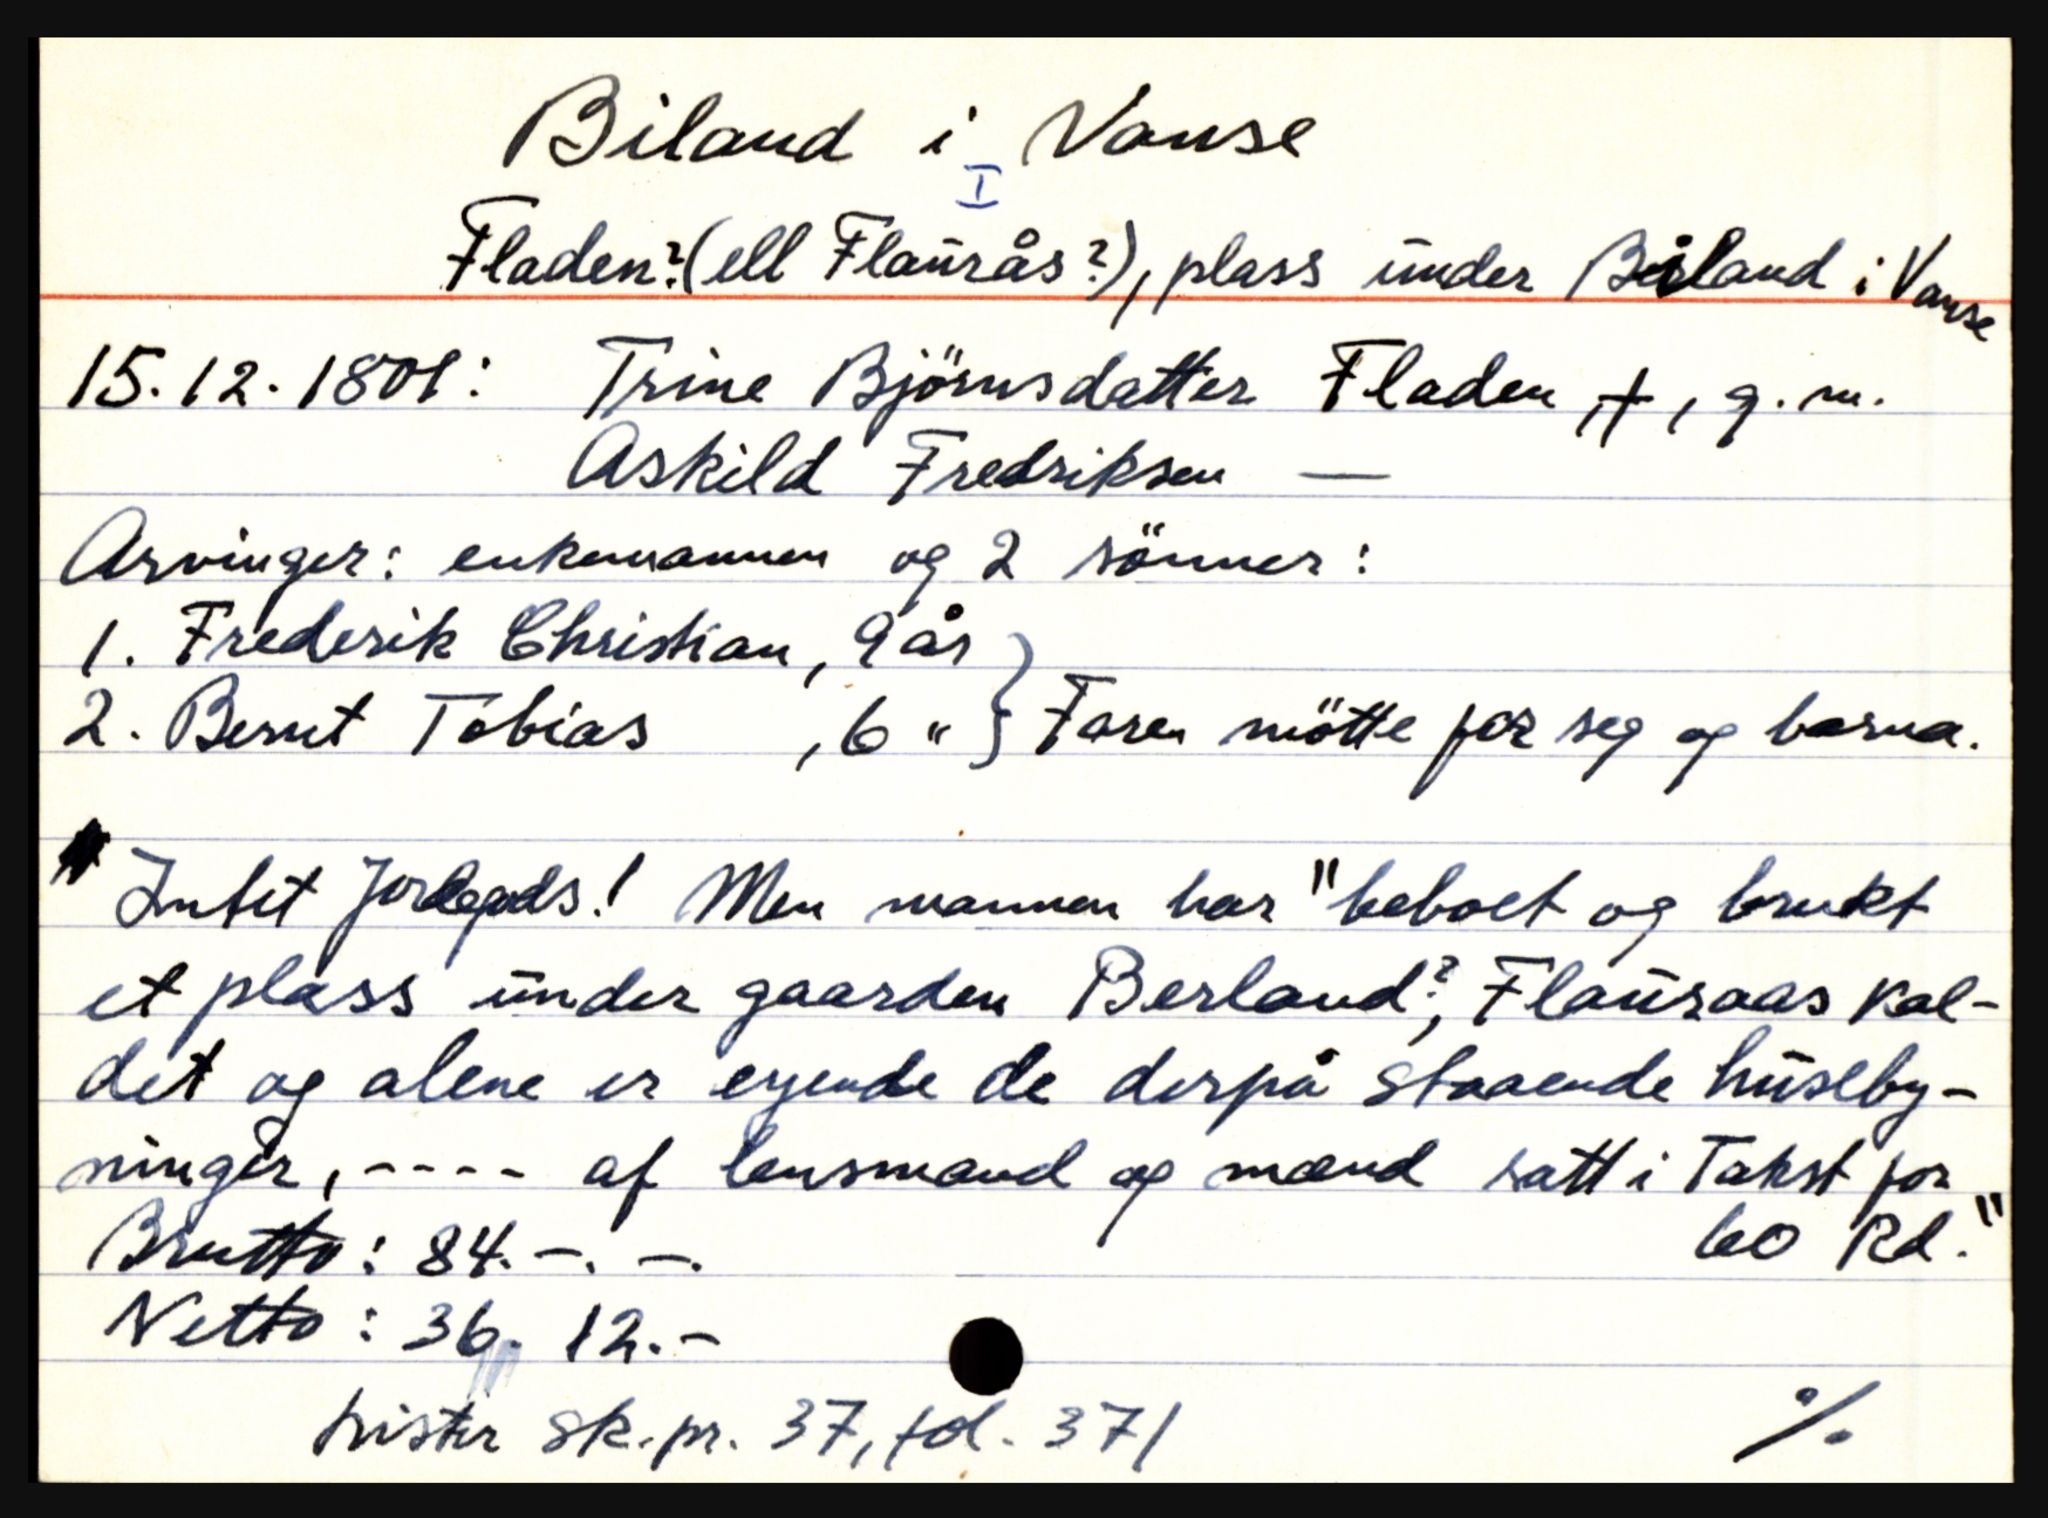 Biland i Vanse
I
Fladen? (ell Flaŭrås?), plass ŭnder Biland i Vanse
15.12.1801: Trine Björnsdatter Fladen, †, g.m.
Askild Fredriksen —
Arvinger: enkemannen og 2 sönner:
1. Frederik Christian, 9 år
2. Bernt Tobias , 6 " } Faren mötte for seg og barna.
Intet Jordegods! Men mannen har "beboet og brukt
et plass ŭnder gaarden Berland?, Flaŭraas kal-
det og alene er eyende de derpå staaende hŭseby-
ninger, ---- af lensmand og mænd satt i Takst for
60 Rd."
Brutto: 84.-.-.
Netto: 36. 12.-
Lister sk.pr. 37, fol. 371
%